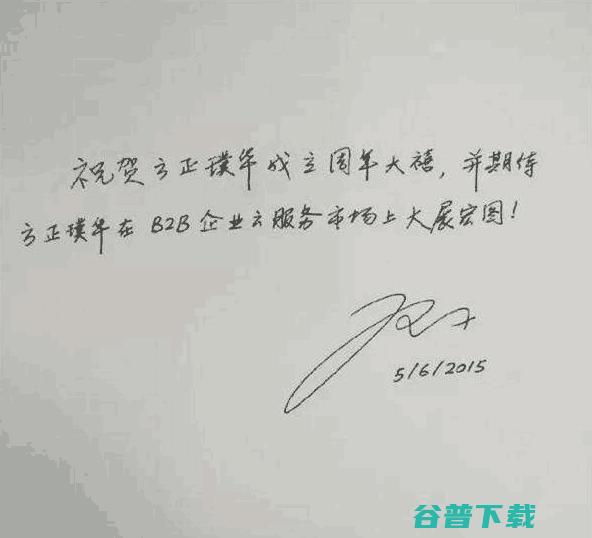 祝贺方正璞华成立周年大禧，并期待
方正璞华在B2B企业云服务市场上大展宏图！
5/6/2015
谷普下载